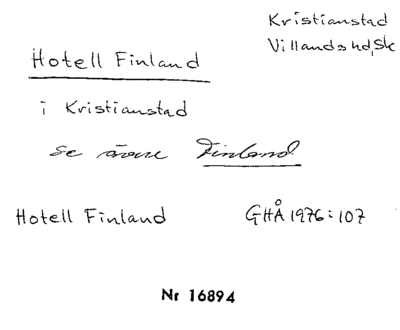 Kristianstad
Villands hd, Sk
Hotell Finland
i Kristianstad
se även Finland
Hotell Finland GHÅ 1976:107
Nr 16894